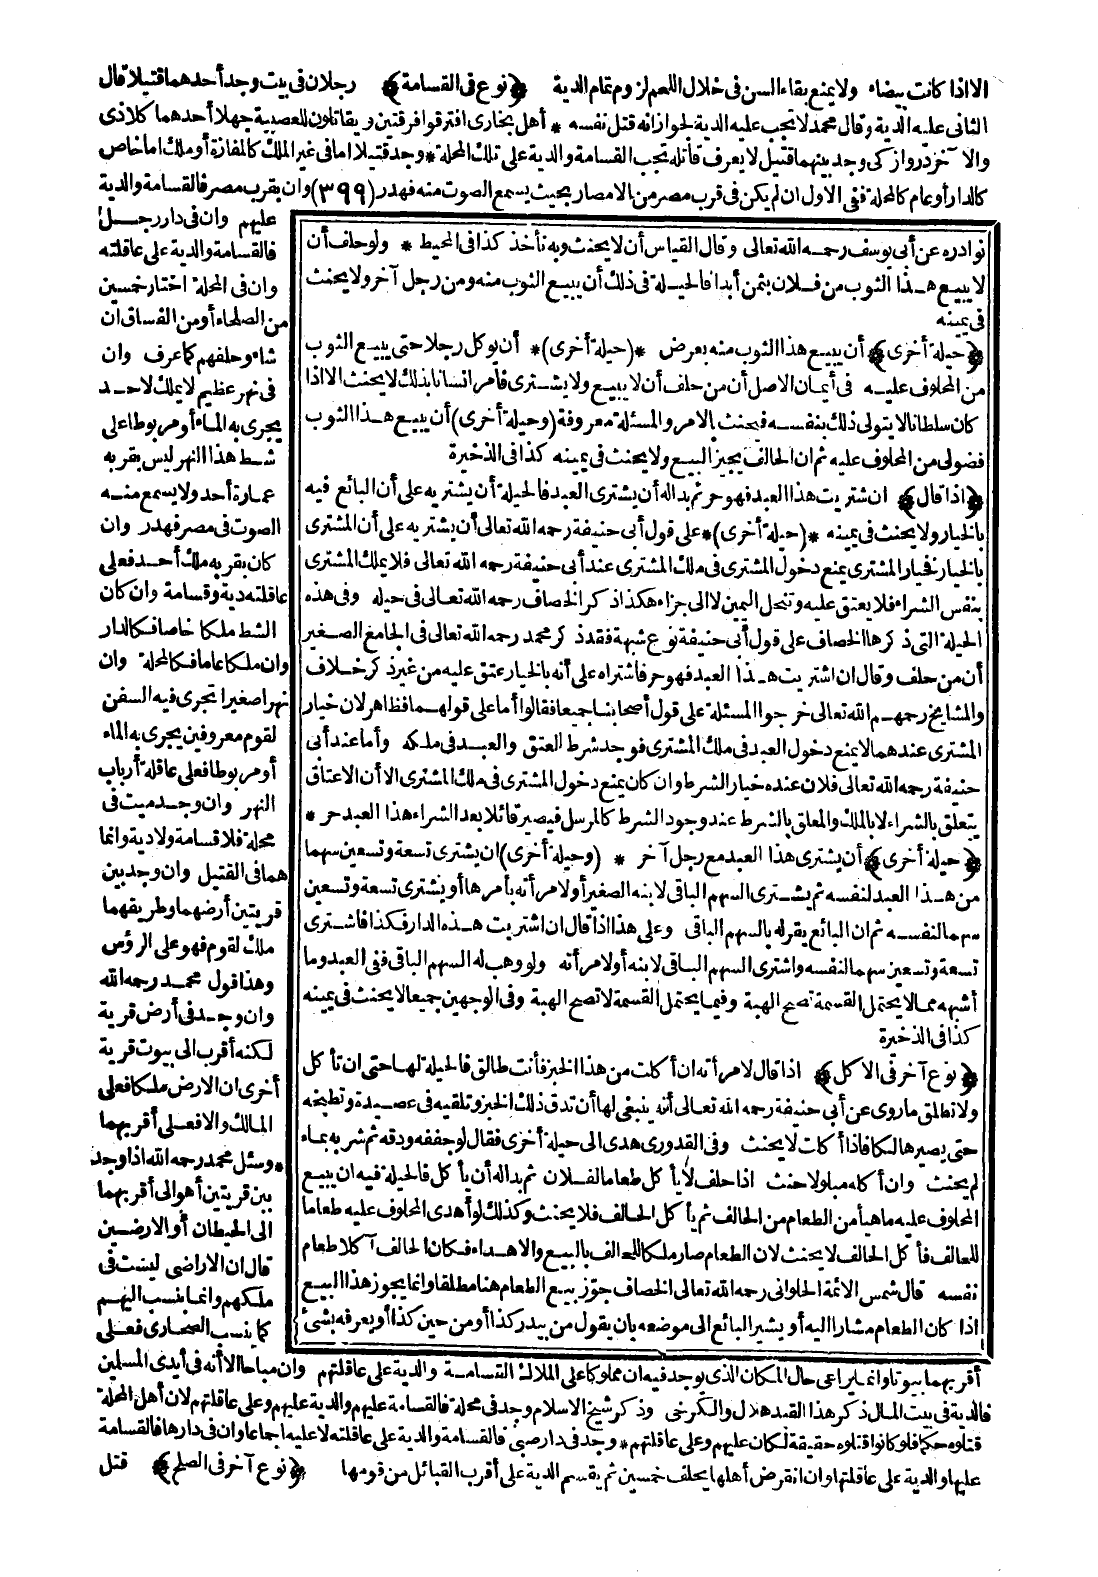 الا اذا كانت بيضاء ولا يمنع بقاء السن فى خلال اللحم لزوم تمام الدية ﴿نوع فى القسامة﴾ رجلان فى بيت وجد أحدهما قتيلا قال
الثانى عليه الدية وقال محمد لا يجب عليه الدية لجواز انه قتل نفسه * أهل بخارى افترقوا فرقتين ويقاتلون للعصبية جهلا أحدهما كلاذى
والآخر دروازكى وجد بينهما قتيل لا يعرف قاتله تجب القسامة والدية على تلك المحلة * وجد قتيلا اما فى غير الملك كالمفازة أو ملك اما خاص
كالدار أو عام كالمحلة ففى الاول ان لم يكن فى قرب مصر من الامصار بحيث يسمع الصوت منه فهدر (٣٩٩) وان بقرب مصر فالقسامة والدية
عليهم وان فى دار رجل
فالقسامة والدية على عاقلته
وان فى المحلة اختار خمسين
من الصلحاء أو من الفساق ان
شاء وحلفهم كما عرف وان
فى نهر عظيم لا يملك لاحد
يجرى به الماء أو مربوطا على
شط هذا النهر ليس بقربه
عمارة أحد ولا يسمع منه
الصوت فى مصر فهدر وان
كان بقربه ملك أحد فعلى
عاقلته دية وقسامة وان كان
الشط ملكا خاصا فكالدار
وان ملكا عاما فكالمحلة وان
نهرا صغيرا تجرى فيه السفن
لقوم معروفين يجرى به الماء
أو مربوطا فعلى عاقلة أرباب
النهر وان وجد ميت فى
محلة فلا قسامة ولا دية وانما
هما فى القتيل وان وجد بين
قريتين أرضهما وطريقهما
ملك لقوم فهو على الرؤس
وهذا قول محمد رحمه الله
وان وجد فى أرض قرية
لكنه أقرب الى بيوت قرية
أخرى ان الارض ملكا فعلى
المالك والا فعلى أقربهما
* وسئل محمد رحمه الله اذا وجد
بين قريتين أهو الى أقربهما
الى الحيطان أو الارضين
قال ان الاراضى ليست فى
ملكهم وانما ينسب اليهم
كما ينسب الصحارى فعلى
أقربهما بيوتا وانما يراعى حال المكان الذى يوجد فيه ان مملوكا على الملاك القسامة والدية على عاقلتهم وان مباحا الا أنه فى أيدى المسلمين
فالدية فى بيت المال ذكر هذا القيد هلال والكرخى وذكر شيخ الاسلام وجد فى محلة فالقسامة عليهم والدية عليهم وعلى عاقلتهم لان أهل المحلة
قتلوه حكما فلو كانوا قتلوه حقيقة لكان عليهم وعلى عاقلتهم * وجد فى دار صبى فالقسامة والدية على عاقلته لا عليه اجماعا وان فى دارها فالقسامة
عليها والدية على عاقلتها وان انقرض أهلها يحلف خمسين ثم يقسم الدية على أقرب القبائل من قومها ﴿نوع آخر فى الصلح﴾ قتل
نوادره عن أبى يوسف رحمه الله تعالى وقال القياس أن لا يحنث وبه نأخذ كذا فى المحيط * ولو حلف أن
لا يبيع هذا الثوب من فلان بثمن أبدا فالحيلة فى ذلك أن يبيع الثوب منه ومن رجل آخر ولا يحنث
فى يمينه
﴿حيلة أخرى﴾ أن يبيع هذا الثوب منه بعرض *(حيلة أخرى)* أن يوكل رجلا حتى يبيع الثوب
من المحلوف عليه فى أيمان الاصل أن من حلف أن لا يبيع ولا يشترى فأمر انسانا بذلك لا يحنث الا اذا
كان سلطانا لا يتولى ذلك بنفسه فيحنث بالامر والمسئلة معروفة (وحيلة أخرى) أن يبيع هذا الثوب
فضولى من المحلوف عليه ثم ان الحالف يجيز البيع ولا يحنث فى يمينه كذا فى الذخيرة
﴿اذا قال﴾ ان اشتريت هذا العبد فهو حر ثم بدا له أن يشترى العبد فالحيلة أن يشتريه على أن البائع فيه
بالخيار ولا يحنث فى يمينه *(حيلة أخرى)* على قول أبى حنيفة رحمه الله تعالى أن يشتريه على أن المشترى
بالخيار فخيار المشترى يمنع دخول المشترى فى ملك المشترى عند أبى حنيفة رحمه الله تعالى فلا يملك المشترى
بنفس الشراء فلا يعتق عليه وتنحل اليمين لا الى جزاء هكذا ذكر الخصاف رحمه الله تعالى فى حيله وفى هذه
الحيلة التى ذكرها الخصاف على قول أبى حنيفة نوع شبهة فقد ذكر محمد رحمه الله تعالى فى الجامع الصغير
أن من حلف وقال ان اشتريت هذا العبد فهو حر فاشتراه على أنه بالخيار عتق عليه من غير ذكر خلاف
والمشايخ رحمهم الله تعالى خرجوا المسئلة على قول أصحابنا جميعا فقالوا أما على قولهما فظاهر لان خيار
المشترى عندهما لا يمنع دخول العبد فى ملك المشترى فوجد شرط العتق والعبد فى ملكه وأما عند أبى
حنيفة رحمه الله تعالى فلان عنده خيار الشرط وان كان يمنع دخول المشترى فى ملك المشترى الا أن الاعتاق
يتعلق بالشراء لا بالملك والمعلق بالشرط عند وجود الشرط كالمرسل فيصير قائلا بعد الشراء هذا العبد حر *
﴿حيلة أخرى﴾ أن يشترى هذا العبد مع رجل آخر * (وحيلة أخرى) ان يشترى تسعة وتسعين سهما
من هذا العبد لنفسه ثم يشترى السهم الباقى لابنه الصغير أو لامرأته بأمرها أو يشترى تسعة وتسعين
سهما لنفسه ثم ان البائع يقر له بالسهم الباقى وعلى هذا اذا قال ان اشتريت هذه الدار فكذا فاشترى
تسعة وتسعين سهما لنفسه واشترى السهم الباقى لابنه أو لامرأته ولو وهب له السهم الباقى ففى العبد وما
أشبهه مما لا يحتمل القسمة تصح الهبة وفيما يحتمل القسمة لا تصح الهبة وفى الوجهين جميعا لا يحنث فى يمينه
كذا فى الذخيرة
﴿نوع آخر فى الاكل﴾ اذا قال لامرأته ان أكلت من هذا الخبز فأنت طالق فالحيلة لها حتى ان تأكل
ولا تطلق ما روى عن أبى حنيفة رحمه الله تعالى أنه ينبغى لها أن تدق ذلك الخبز وتلقيه فى عصيدة وتطبخه
حتى يصير هالكا فاذا أكلت لا يحنث وفى القدورى هدى الى حيلة أخرى فقال لو جففه ودقه ثم شربه بماء
لم يحنث وان أكله مبلولا حنث اذا حلف لا يأكل طعاما لفلان ثم بدا له أن يأكل فالحيلة فيه ان يبيع
المحلوف عليه ما هيأ من الطعام من الحالف ثم يأكل الحالف فلا يحنث وكذلك لو أهدى المحلوف عليه طعاما
للحالف فأكل الحالف لا يحنث لان الطعام صار ملكا للحالف بالبيع والاهداء فكان الحالف آكلا طعام
نفسه قال شمس الائمة الحلوانى رحمه الله تعالى الخصاف جوّز بيع الطعام هنا مطلقا وانما يجوز هذا البيع
اذا كان الطعام مشارا اليه أو يشير البائع الى موضعه بان يقول من بيدر كذا أو من حين كذا أو يعرفه بشئ